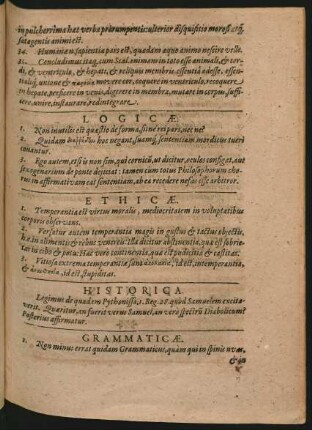 in pulcherrima hæc verba prorumpentis: ulterior disquisitio meros est
satagentis animi est.
34. Humanæ n. sapientia pars est, quædam æquo animo nescire velle.
35. Concludimus itaq, cum Scal. animam in toto esse animali, & cor-
di, & ventriculo, & hepati, & reliquis membris essentiâ adesse, essen-
tialiq; unione &
in hepate, perficere in venis, digerere in membra, mutare in corpus, suffi-
cere, unire, instaurare, redintegrare.
LOGICÆ.
1. Non inutilis est quæstio de forma, sit ne rei pars, nec ne?
2. Quidam hoc negant, suamq; sententiam mordicus tueri
conantur.
3. Ego autem, etsi is non sim, qui cornicũ, ut dicitur, oculos
sexagenarium de ponte dejiciat: tamen cum totus Philosophorum cho-
rus in affirmativam eat sententiam, ab ea recedere nefas esse arbitror.
ETHICÆ.
1. Temperantia est virtus moralis, mediocritatem in voluptatibus
corporis observans.
2. Versatur autem temperantia magis in gustus & tactus objectis.
Hæc in alimentis & rebus venereis: Illa dicitur abstinentia, quæ est sobrie-
tas in cibo & potu: Hæc vero continentia, quæ est pudicitia & castitas.
3. Vitiosa extrema temperantiæ sunt id est, intemperantia,
& id est, stupiditas.
HISTORICA.
Legimus de quadam Pythonissa, 1. Reg. 28. quòd Samuelem excita-
verit. Quæritur, an fuerit verus Samuel, an verò spectrũ Diabolicum?
Posterius affirmatur.
GRAMMATICÆ.
1. Non minus errat quidam Grammaticus, quàm qui in spinis uvas,